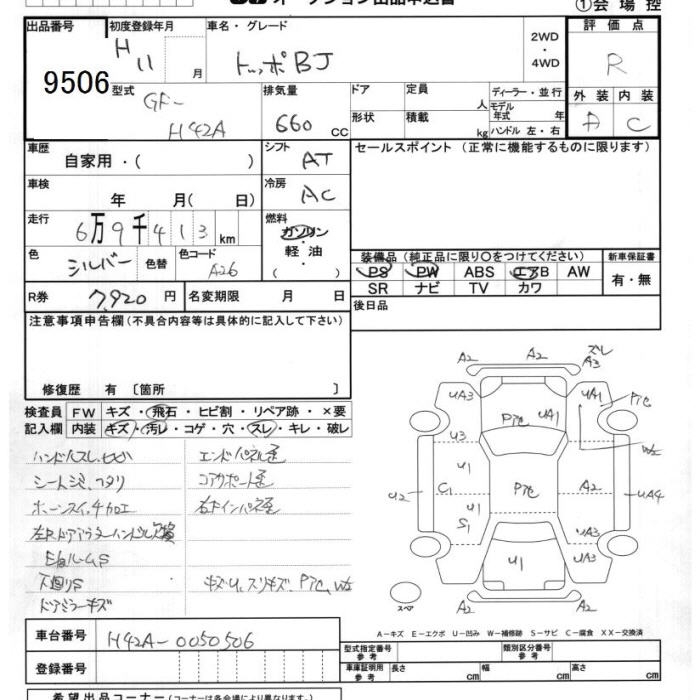 ①会場控
出品番号 初度登録年月 車名・グレード 評価点
H 11 月 トッポBJ 2WD・4WD R
9506
型式 排気量 ドア 定員 ディーラー・並行 外装 内装
GF- 人 モデル年式 年 A C
H42A 660 CC 形状 積載 kg ハンドル 左・右
車歴 シフト セールスポイント (正常に機能するものに限ります)
自家用・( ) AT
車検 冷房
年 月( 日) AC
走行 燃料
6万9千413 km ガソリン
色 色コード 軽油 装備品 (純正品に限り○をつけてください) 新車保証書
シルバー 色替 A26 ( ) PS PW ABS エアB AW 有・無
SR ナビ TV カワ
R券 7,920 円 名変期限 月 日 後日品
注意事項申告欄(不具合内容等は具体的に記入して下さい)
修復歴 有 〔箇所 〕
検査員 FW キズ・飛石・ヒビ割・リペア跡・×要
記入欄 内装 キズ・汚レ・コゲ・穴・スレ・キレ・破レ
エンドパネル歪
コアサポート歪
右Fインパネ歪
下回りS
ドアミラーキズ
A2 A2 ズレ A3
UA3 Pﾅﾋ UA1 UA1 Pﾅﾋ
U3 W2
U1
U2 C1 Pﾅﾋ A2 UA4
U1
S1 UA3
U1
A2 A2
スペア
A-キズ E-エクボ U-凹み W-補修跡 S-サビ C-腐食 XX-交換済
車台番号 H42A-0050506
型式指定番号 参考 類別区分番号 参考
登録番号 車庫証明用 参考 長さ cm 幅 cm 高さ cm
希望出品コーナー(コーナー名は各会場により異なります。)